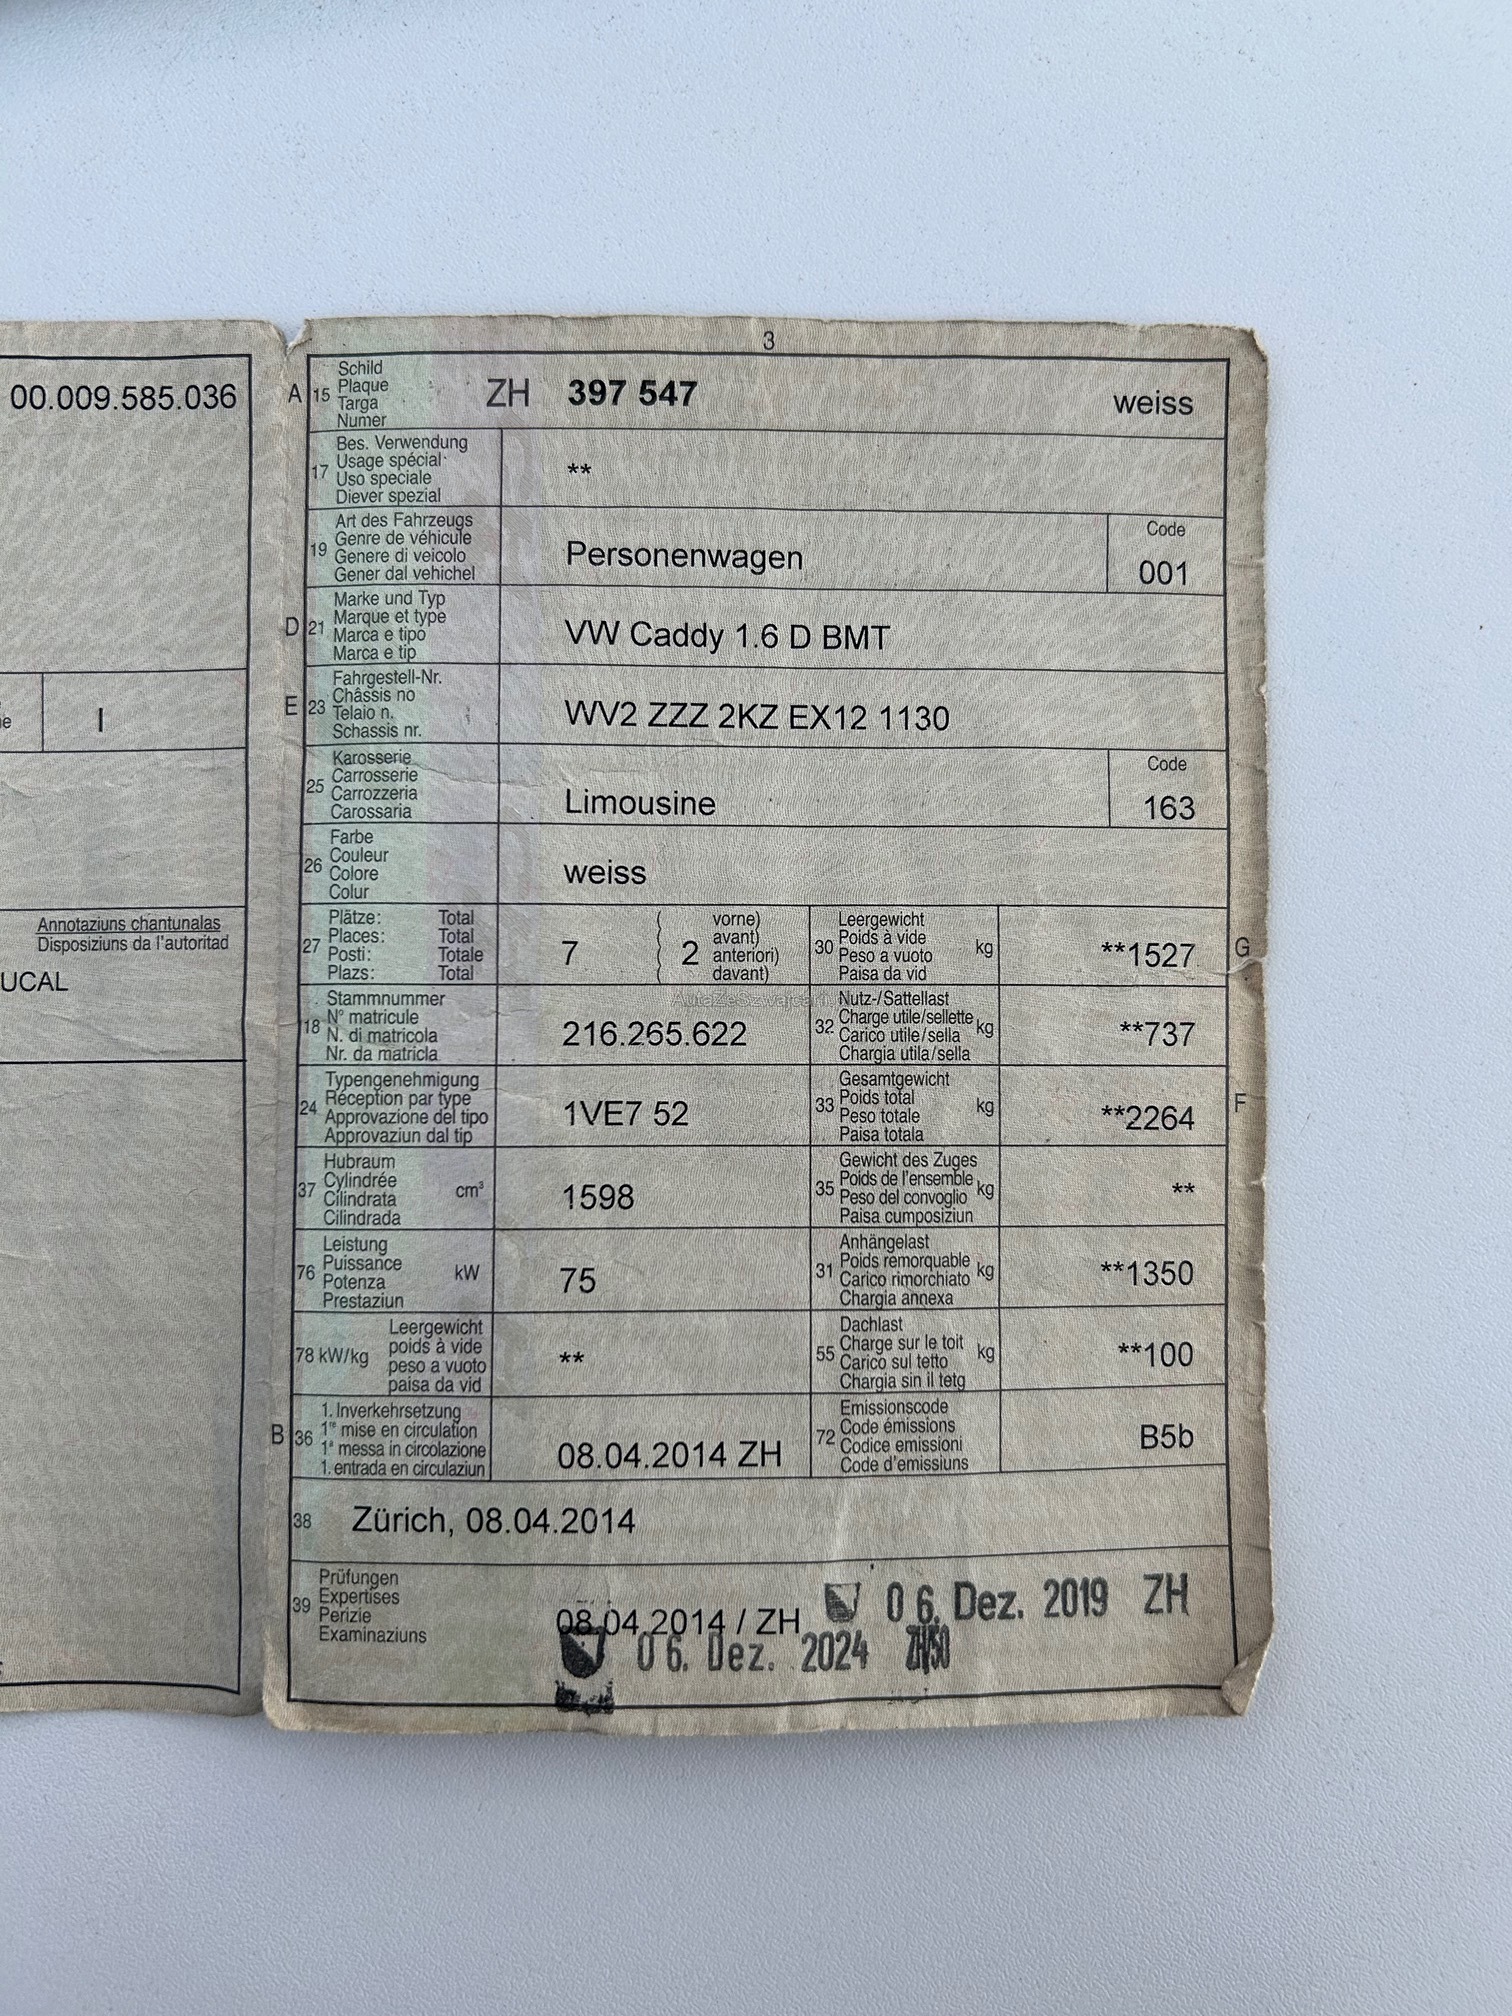 3
00.009.585.036
I
Annotaziuns chantunalas
Disposiziuns da l'autoritad
UCAL
A 15 Schild
Plaque
Targa
Numer
ZH 397 547 weiss
17 Bes. Verwendung
Usage spécial
Uso speciale
Diever spezial
**
19 Art des Fahrzeugs
Genre de véhicule
Genere di veicolo
Gener dal vehichel
Personenwagen
Code
001
D 21 Marke und Typ
Marque et type
Marca e tipo
Marca e tip
VW Caddy 1.6 D BMT
E 23 Fahrgestell-Nr.
Châssis no
Telaio n.
Schassis nr.
WV2 ZZZ 2KZ EX12 1130
25 Karosserie
Carrosserie
Carrozzeria
Carossaria
Limousine
Code
163
26 Farbe
Couleur
Colore
Colur
weiss
27 Plätze: Total
Places: Total
Posti: Totale
Plazs: Total
7 ( 2 vorne)
avant)
anteriori)
davant)
30 Leergewicht
Poids à vide
Peso a vuoto
Paisa da vid
kg
**1527
G
AutaZeSzwajcarii
18 Stammnummer
N° matricule
N. di matricola
Nr. da matricla
216.265.622
32 Nutz-/Sattellast
Charge utile/sellette
Carico utile/sella
Chargia utila/sella
kg
**737
24 Typengenehmigung
Réception par type
Approvazione del tipo
Approvaziun dal tip
1VE7 52
33 Gesamtgewicht
Poids total
Peso totale
Paisa totala
kg
**2264
F
37 Hubraum
Cylindrée
Cilindrata
Cilindrada
cm³
1598
35 Gewicht des Zuges
Poids de l'ensemble
Peso del convoglio
Paisa cumposiziun
kg
**
76 Leistung
Puissance
Potenza
Prestaziun
kW
75
31 Anhängelast
Poids remorquable
Carico rimorchiato
Chargia annexa
kg
**1350
78 kW/kg Leergewicht
poids à vide
peso a vuoto
paisa da vid
**
55 Dachlast
Charge sur le toit
Carico sul tetto
Chargia sin il tetg
kg
**100
B 36 1. Inverkehrsetzung
1re mise en circulation
1a messa in circolazione
1. entrada en circulaziun
08.04.2014 ZH
72 Emissionscode
Code émissions
Codice emissioni
Code d'emissiuns
B5b
38 Zürich, 08.04.2014
39 Prüfungen
Expertises
Perizie
Examinaziuns
08.04.2014 / ZH
06. Dez. 2019 ZH
06. Dez. 2024